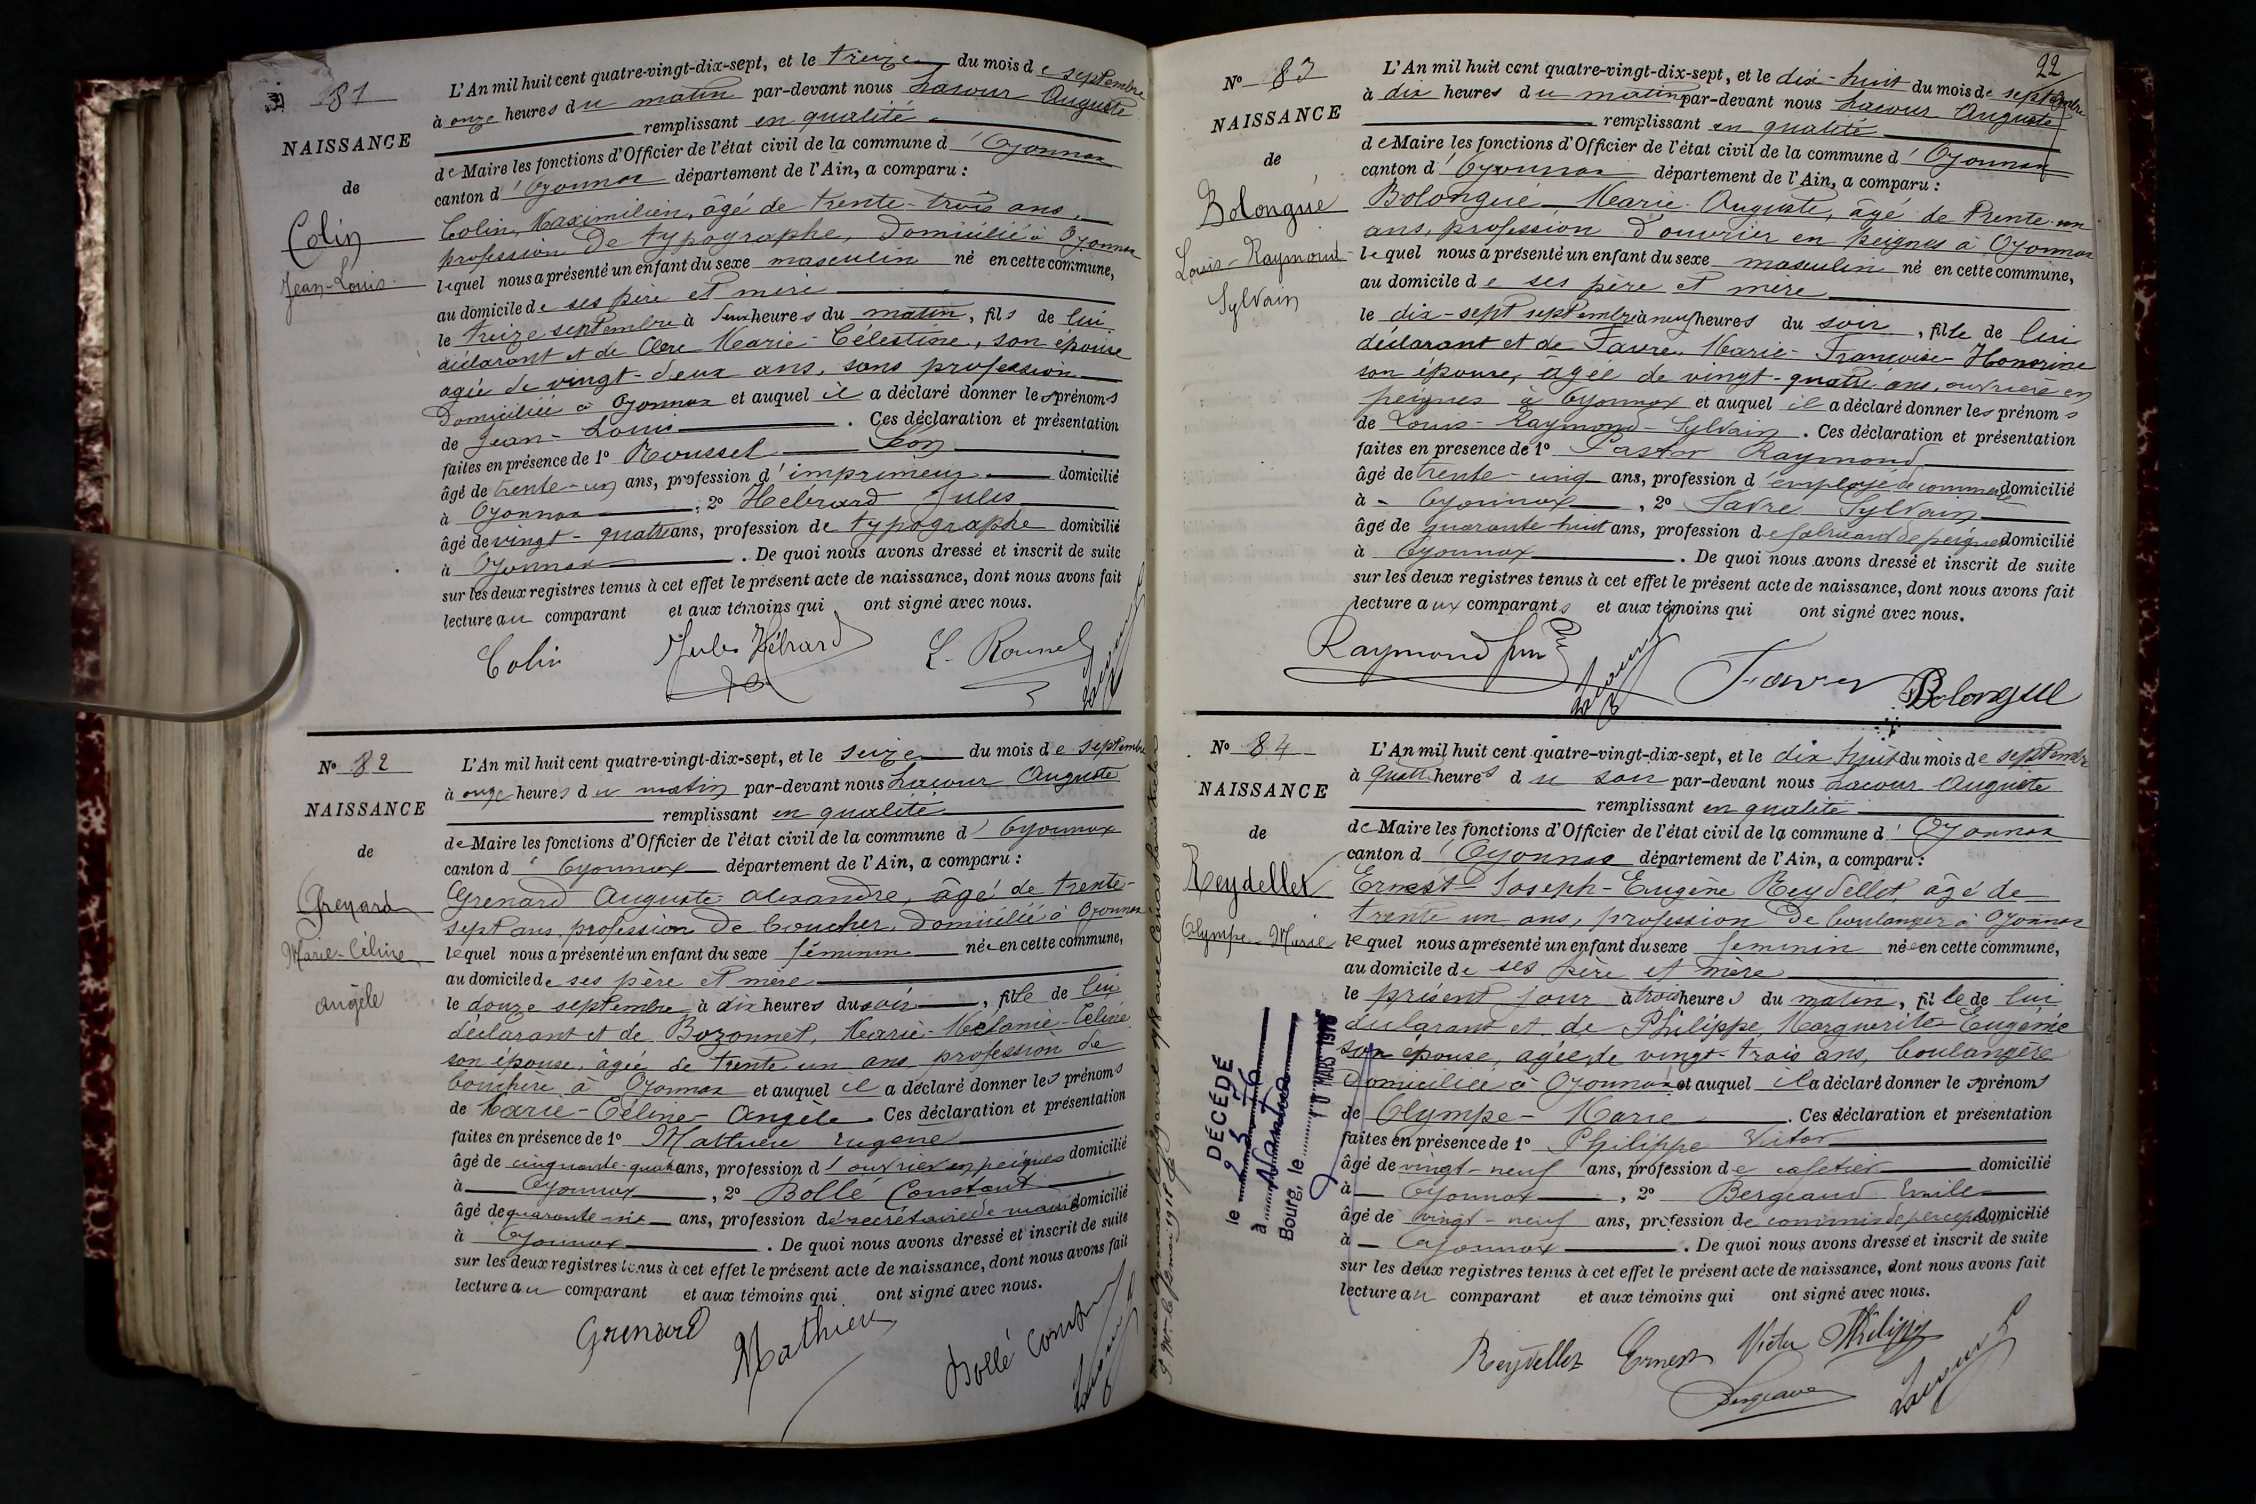 81
NAISSANCE
de
Colin
Jean-Louis
L'An mil huit cent quatre-vingt-dix-sept, et le treize du mois de septembre
à onze heures du matin par-devant nous Lacour Auguste
remplissant en qualité
de Maire les fonctions d'Officier de l'état civil de la commune d'Oyonnax
canton d'Oyonnax département de l'Ain, a comparu :
Colin, Maximilien, âgé de trente-trois ans,
profession de typographe, domicilié à Oyonnax
lequel nous a présenté un enfant du sexe masculin né en cette commune,
au domicile de ses père et mère
le treize septembre à deux heures du matin, fils de lui
déclarant et de Clerc Marie-Célestine, son épouse
agée de vingt-deux ans, sans profession
domiciliée à Oyonnax et auquel il a déclaré donner les prénoms
de Jean-Louis. Ces déclaration et présentation
faites en présence de 1º Roussel Léon
âgé de trente-un ans, profession d'imprimeur domicilié
à Oyonnax ; 2º Hébrard Jules
âgé de vingt-quatre ans, profession de typographe domicilié
à Oyonnax. De quoi nous avons dressé et inscrit de suite
sur les deux registres tenus à cet effet le présent acte de naissance, dont nous avons fait
lecture au comparant et aux témoins qui ont signé avec nous.
Colin Jules Hébrard L. Roussel Lacour
Nº 82
NAISSANCE
de
Grenard
Marie-Céline
Angèle
L'An mil huit cent quatre-vingt-dix-sept, et le seize du mois de septembre
à onze heures du matin par-devant nous Lacour Auguste
remplissant en qualité
de Maire les fonctions d'Officier de l'état civil de la commune d'Oyonnax
canton d'Oyonnax département de l'Ain, a comparu :
Grenard Auguste Alexandre, âgé de trente-
sept ans, profession de boucher, domicilié à Oyonnax
lequel nous a présenté un enfant du sexe féminin née en cette commune,
au domicile de ses père et mère
le douze septembre à dix heures du soir, fille de lui
déclarant et de Bozonnet, Marie-Mélanie-Céline
son épouse, âgée de trente un ans, profession de
bouchère à Oyonnax et auquel il a déclaré donner les prénoms
de Marie-Céline-Angèle. Ces déclaration et présentation
faites en présence de 1º Mathieu Eugène
âgé de cinquante-quatre ans, profession d'ouvrier en peignes domicilié
à Oyonnax, 2º Bollé Constant
âgé de quarante-six ans, profession de secrétaire de mairie domicilié
à Oyonnax. De quoi nous avons dressé et inscrit de suite
sur les deux registres tenus à cet effet le présent acte de naissance, dont nous avons fait
lecture au comparant et aux témoins qui ont signé avec nous.
Grenard Mathieu Bollé Constant Lacour
22
Nº 83
NAISSANCE
de
Bolongué
Louis-Raymond
Sylvain
L'An mil huit cent quatre-vingt-dix-sept, et le dix-huit du mois de septembre
à dix heures du matin par-devant nous Lacour Auguste
remplissant en qualité
de Maire les fonctions d'Officier de l'état civil de la commune d'Oyonnax
canton d'Oyonnax département de l'Ain, a comparu :
Bolongué Marie-Auguste, âgé de trente-un
ans, profession d'ouvrier en peignes à Oyonnax
lequel nous a présenté un enfant du sexe masculin né en cette commune,
au domicile de ses père et mère
le dix-sept septembre à neuf heures du soir, fils de lui
déclarant et de Favre, Marie-Françoise-Honorine
son épouse, âgée de vingt-quatre ans, ouvrière en
peignes à Oyonnax et auquel il a déclaré donner les prénoms
de Louis-Raymond-Sylvain. Ces déclaration et présentation
faites en présence de 1º Pastor Raymond
âgé de trente-cinq ans, profession d'employé de commerce domicilié
à Oyonnax, 2º Favre Sylvain
âgé de quarante-huit ans, profession de fabricant de peignes domicilié
à Oyonnax. De quoi nous avons dressé et inscrit de suite
sur les deux registres tenus à cet effet le présent acte de naissance, dont nous avons fait
lecture aux comparants et aux témoins qui ont signé avec nous.
Raymond Lacour Favre Bolongué
Nº 84
NAISSANCE
de
Reydellet
Olympe-Marie
L'An mil huit cent quatre-vingt-dix-sept, et le dix huit du mois de septembre
à quatre heures du soir par-devant nous Lacour Auguste
remplissant en qualité
de Maire les fonctions d'Officier de l'état civil de la commune d'Oyonnax
canton d'Oyonnax département de l'Ain, a comparu :
Ernest-Joseph-Eugène Reydellet, âgé de
trente un ans, profession de boulanger à Oyonnax
lequel nous a présenté un enfant du sexe féminin née en cette commune,
au domicile de ses père et mère
le présent jour à trois heures du matin, fille de lui
déclarant et de Philippe, Marguerite-Eugénie
son épouse, agée de vingt-trois ans, boulangère
domiciliée à Oyonnax et auquel il a déclaré donner les prénoms
de Olympe-Marie. Ces déclaration et présentation
faites en présence de 1º Philippe Victor
âgé de vingt-neuf ans, profession de cafetier domicilié
à Oyonnax, 2º Bergeaud Emile
âgé de vingt-neuf ans, profession de commis de perception domicilié
à Oyonnax. De quoi nous avons dressé et inscrit de suite
sur les deux registres tenus à cet effet le présent acte de naissance, dont nous avons fait
lecture au comparant et aux témoins qui ont signé avec nous.
Reydellet Ernest Victor Philippe
Bergeaud Lacour
DÉCÉDÉ
le
à Nantua
Bourg, le 10 MARS 1976